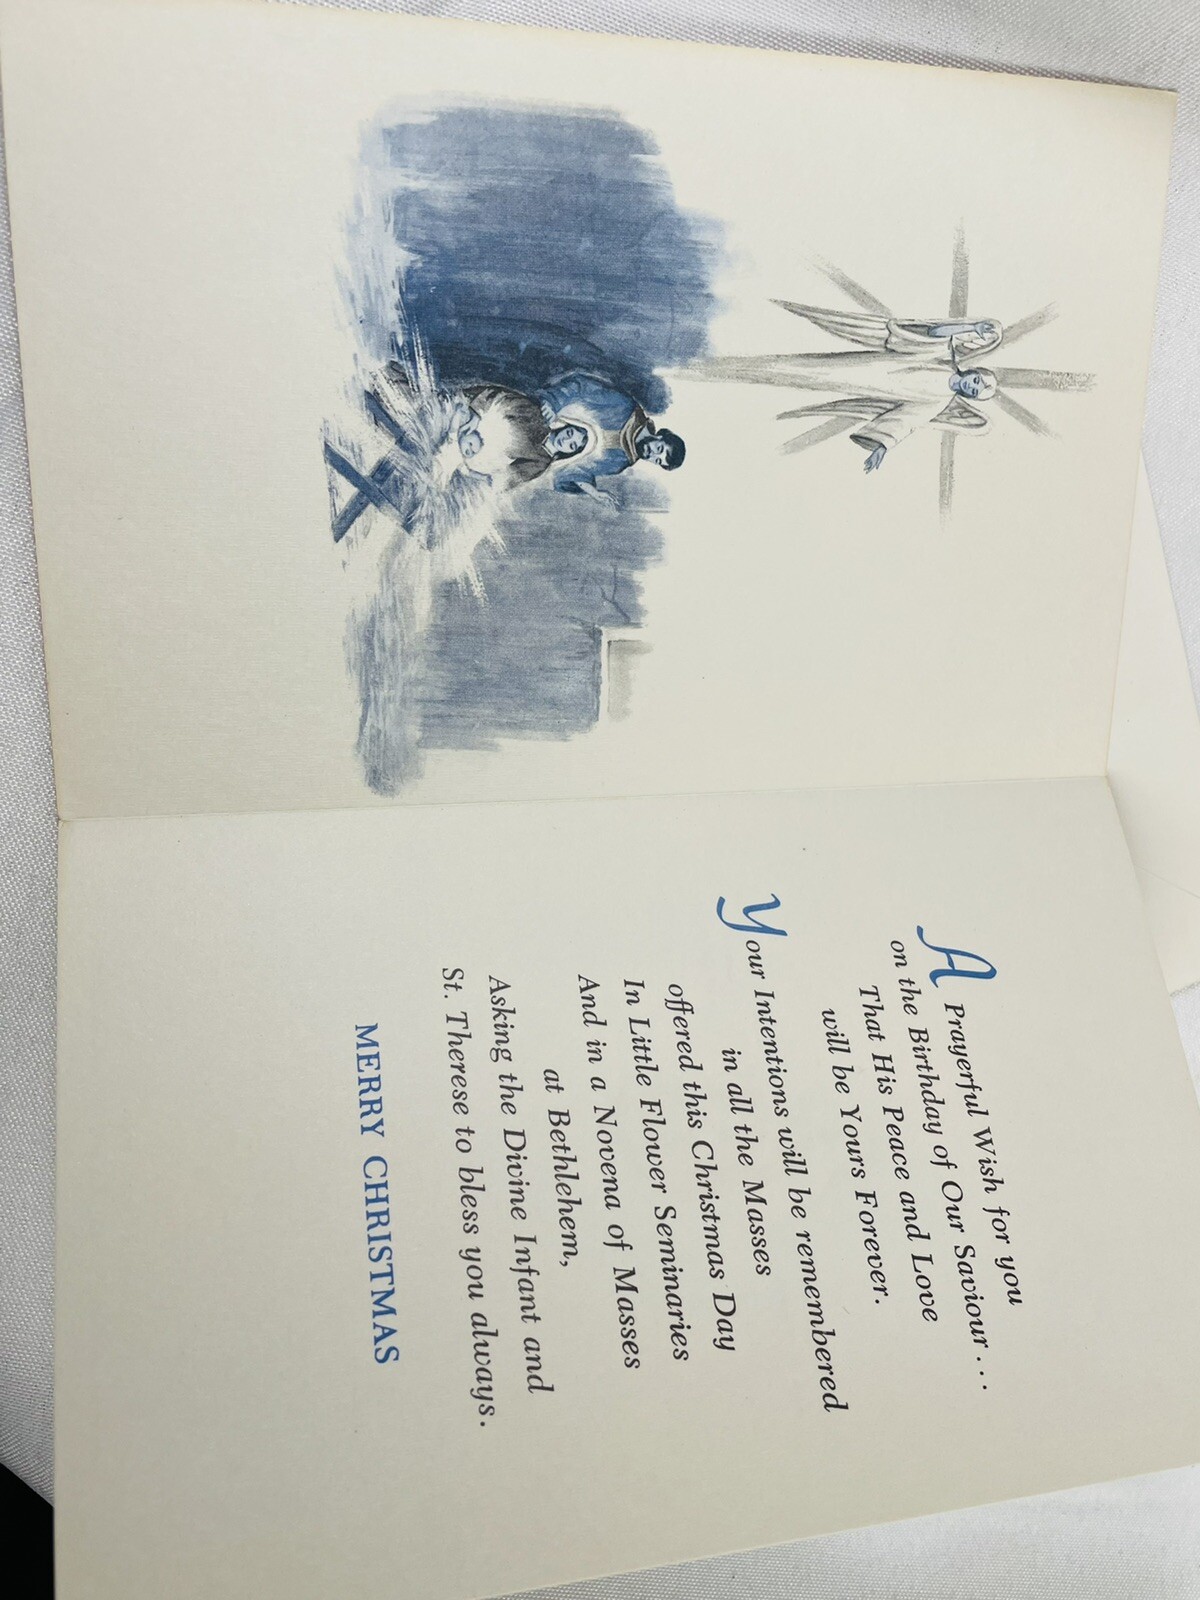 A Prayerful Wish for you
on the Birthday of Our Saviour . . .
That His Peace and Love
will be Yours Forever.
Your Intentions will be remembered
in all the Masses
offered this Christmas Day
In Little Flower Seminaries
And in a Novena of Masses
at Bethlehem,
Asking the Divine Infant and
St. Therese to bless you always.
MERRY CHRISTMAS